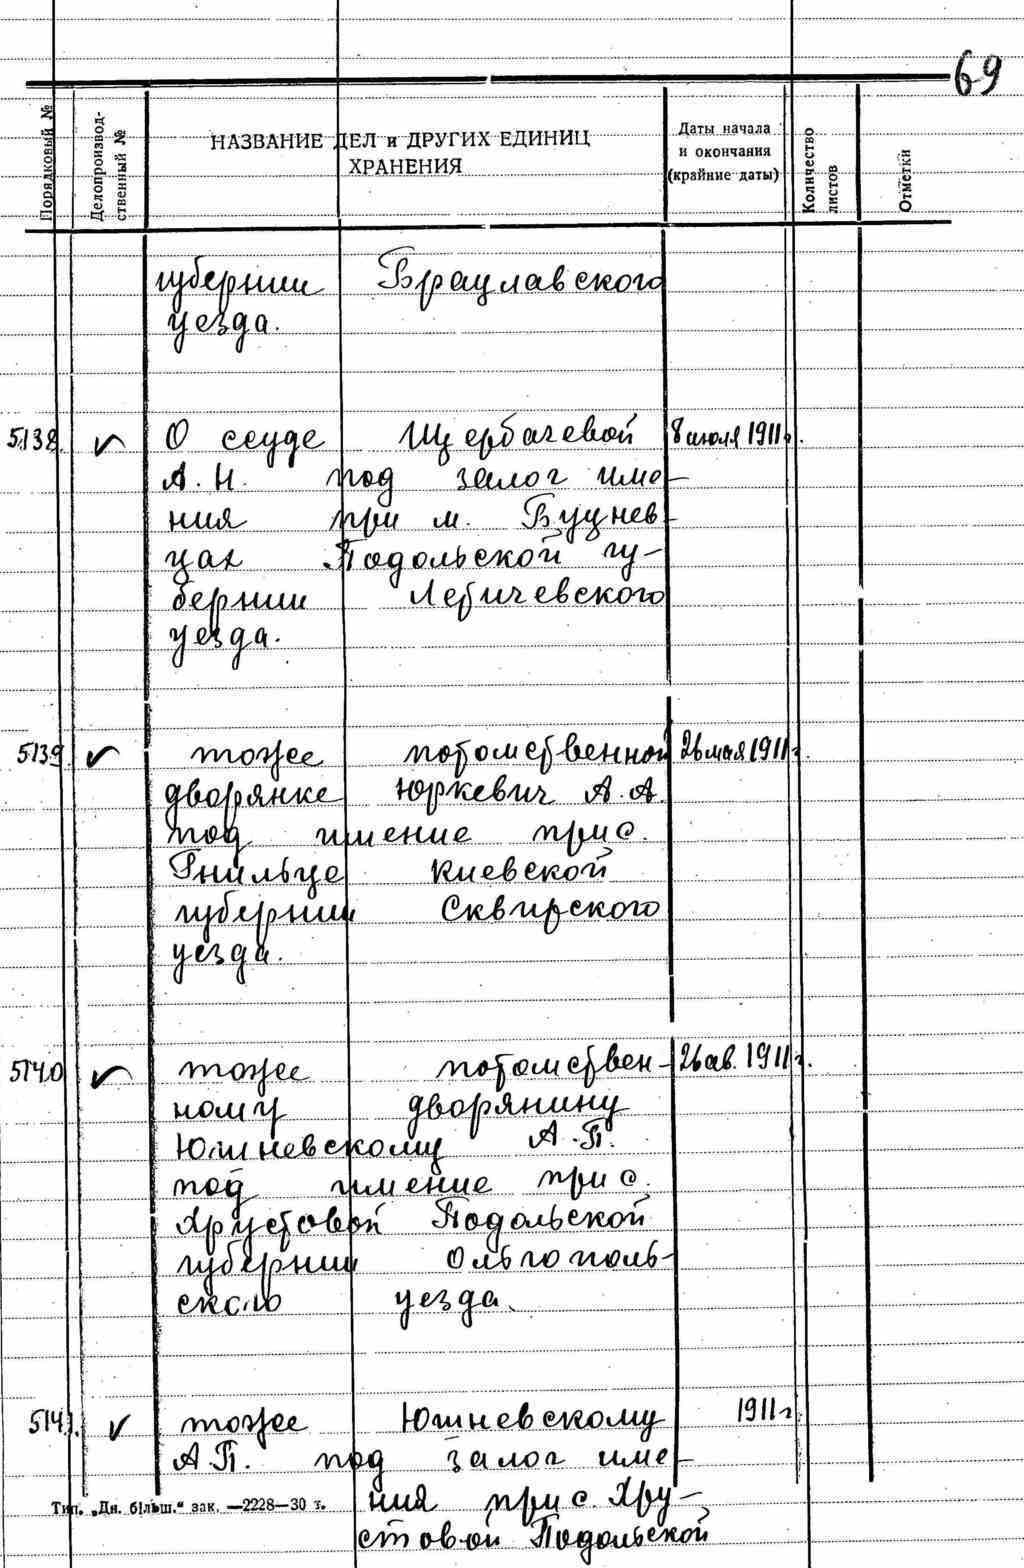 69
Порядковый №
Делопроизвод-
ственный №
НАЗВАНИЕ ДЕЛ и ДРУГИХ ЕДИНИЦ
ХРАНЕНИЯ
Даты начала
и окончания
(крайние даты)
Количество
листов
Отметки
губернии Браулавского
уезда.
5138. О ссуде Щербачевой 8 июля 1911г.
А. Н. под залог име-
ния при м. Вуцнев-
цах Подольской гу-
бернии Летичевского
уезда.
5139. тоже потомственной 26 мая 1911г.
дворянке Юркевич А. А.
под имение при с.
Гнильце Киевской
губернии Сквирского
уезда.
5140 тоже потомствен- 26 ав. 1911г.
ному дворянину
Юшневскому А. П.
под имение при с.
Хрустовой Подольской
губернии Ольгополь-
ского уезда.
5141. тоже Юшневскому 1911г
А. П. под залог име-
ния при с. Хру-
стовой Подольской
Тип. „Дн. більш." зак. —2228—30 т.